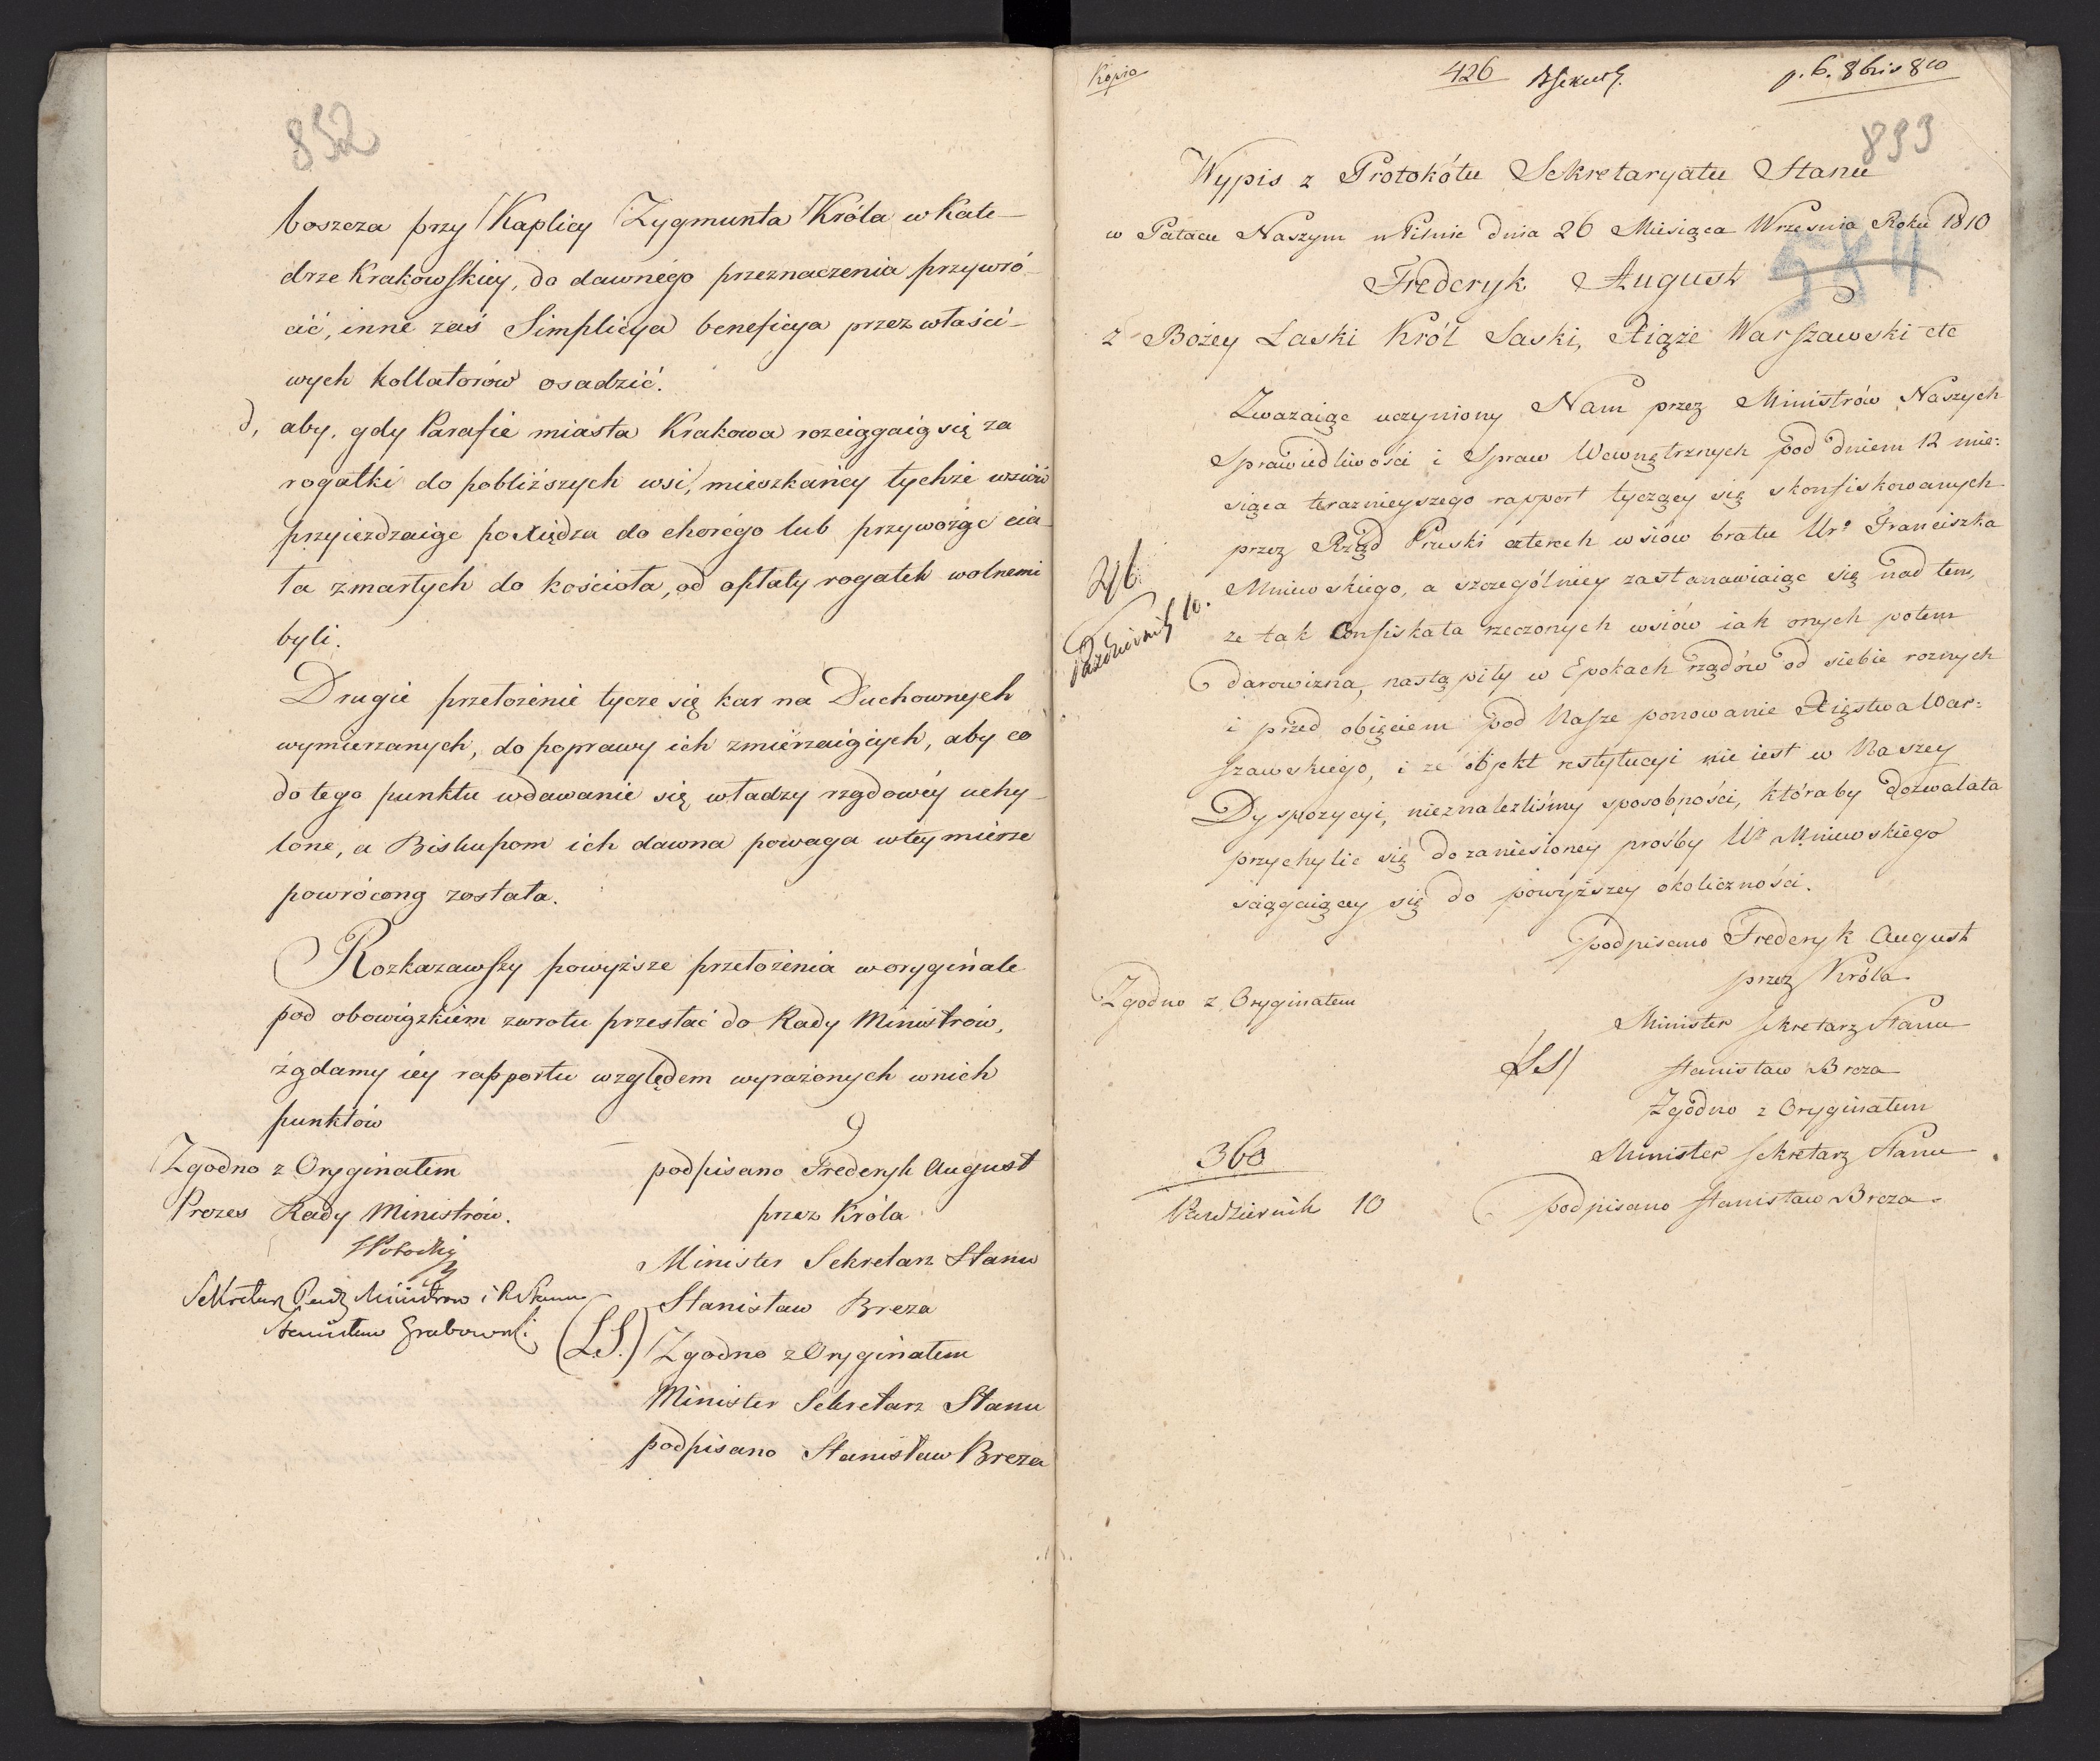 852
boszcza przy Kaplicy Zygmunta Króla w Kate-
drze Krakowskiey, do dawnego przeznaczenia przywró-
cić, inne zaś Simplicya beneficya przez właści-
wych kollatorów osadzić.
d, aby, gdy Parafie miasta Krakowa rozciągaią się za
rogatki do pobliższych wsi, mieszkańcy tychże wsiów
przyieżdzaiąc po Xiędza do chorego lub przywożąc cia-
ła zmarłych do kościoła, od opłaty rogatek wolnemi
byli.
Drugie przełożenie tycze się kar na Duchownych
wymierzanych, do poprawy ich zmierzaiących, aby co
do tego punktu wdawanie się władzy rządowéy uchy-
lone, a Biskupom ich dawna powaga w tey mierze
powróconą została.
Rozkazawszy powyższe przełożenia w oryginale
pod obowiązkiem zwrotu przesłać do Rady Ministrów,
żądamy iéy rapportu względem wyrażonych w nich
punktów
Zgodno z Oryginałem
Prezes Rady Ministrów.
Sekretarz Rady Ministrow i R. Stanu
Stanisław Grabowski
podpisano Frederyk August
przez Króla
Minister Sekretarz Stanu
Stanisław Breza
(L.S.) Zgodno z Oryginałem
Minister Sekretarz Stanu
podpisano Stanisław Breza
Kopia
426
p. 6. 8bris 810
893
Wypis z Protokółu Sekretaryatu Stanu
w Pałacu Naszym w Pilnie dnia 26 Miesiąca Wrzesnia Roku 1810
584
Frederyk August
z Bożey Łaski Król Saski, Xiąże Warszawski etc
Zważaiąc uczyniony Nam przez Ministrów Naszych
Sprawiedliwości i Spraw Wewnętrznych pod dniem 12 mie:
siąca teraznieyszego rapport tyczący się skonfiskowanych
przez Rząd Pruski czterech wsiów bratu Ur. Franciszka
Mniewskiego, a szczególniey zastanawiaiąc się nad tem,
że tak Confiskata rzeczonych wsiów iak onych potem
darowizna, nastąpiły w Epokach rządów od siebie roznych
i przed obięciem pod Nasze panowanie Xięstwa War:
szawskiego, i że objekt restytucyi nie iest w Naszey
Dyspozycyi, nieznalezliśmy sposobności, któraby dozwalała
przychylic się do zaniesioney prośby Ur Mniewskiego
sciągaiącey się do powyższey okoliczności.
Październik 10.
podpisano Frederyk August
przez Króla
Minister Sekretarz Stanu
/LS/ Stanisław Breza
Zgodno z Oryginałem
Minister Sekretarz Stanu
podpisano Stanisław Breza
Zgodno z Oryginałem
360
Pazdziernik 10